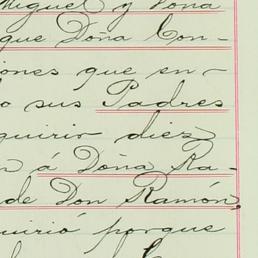 Miguel y Doña
que Doña Con-
iones que en-
o sus Padres
quirir diez
n á Doña Ra-
de Don Ramón,
uirió porque